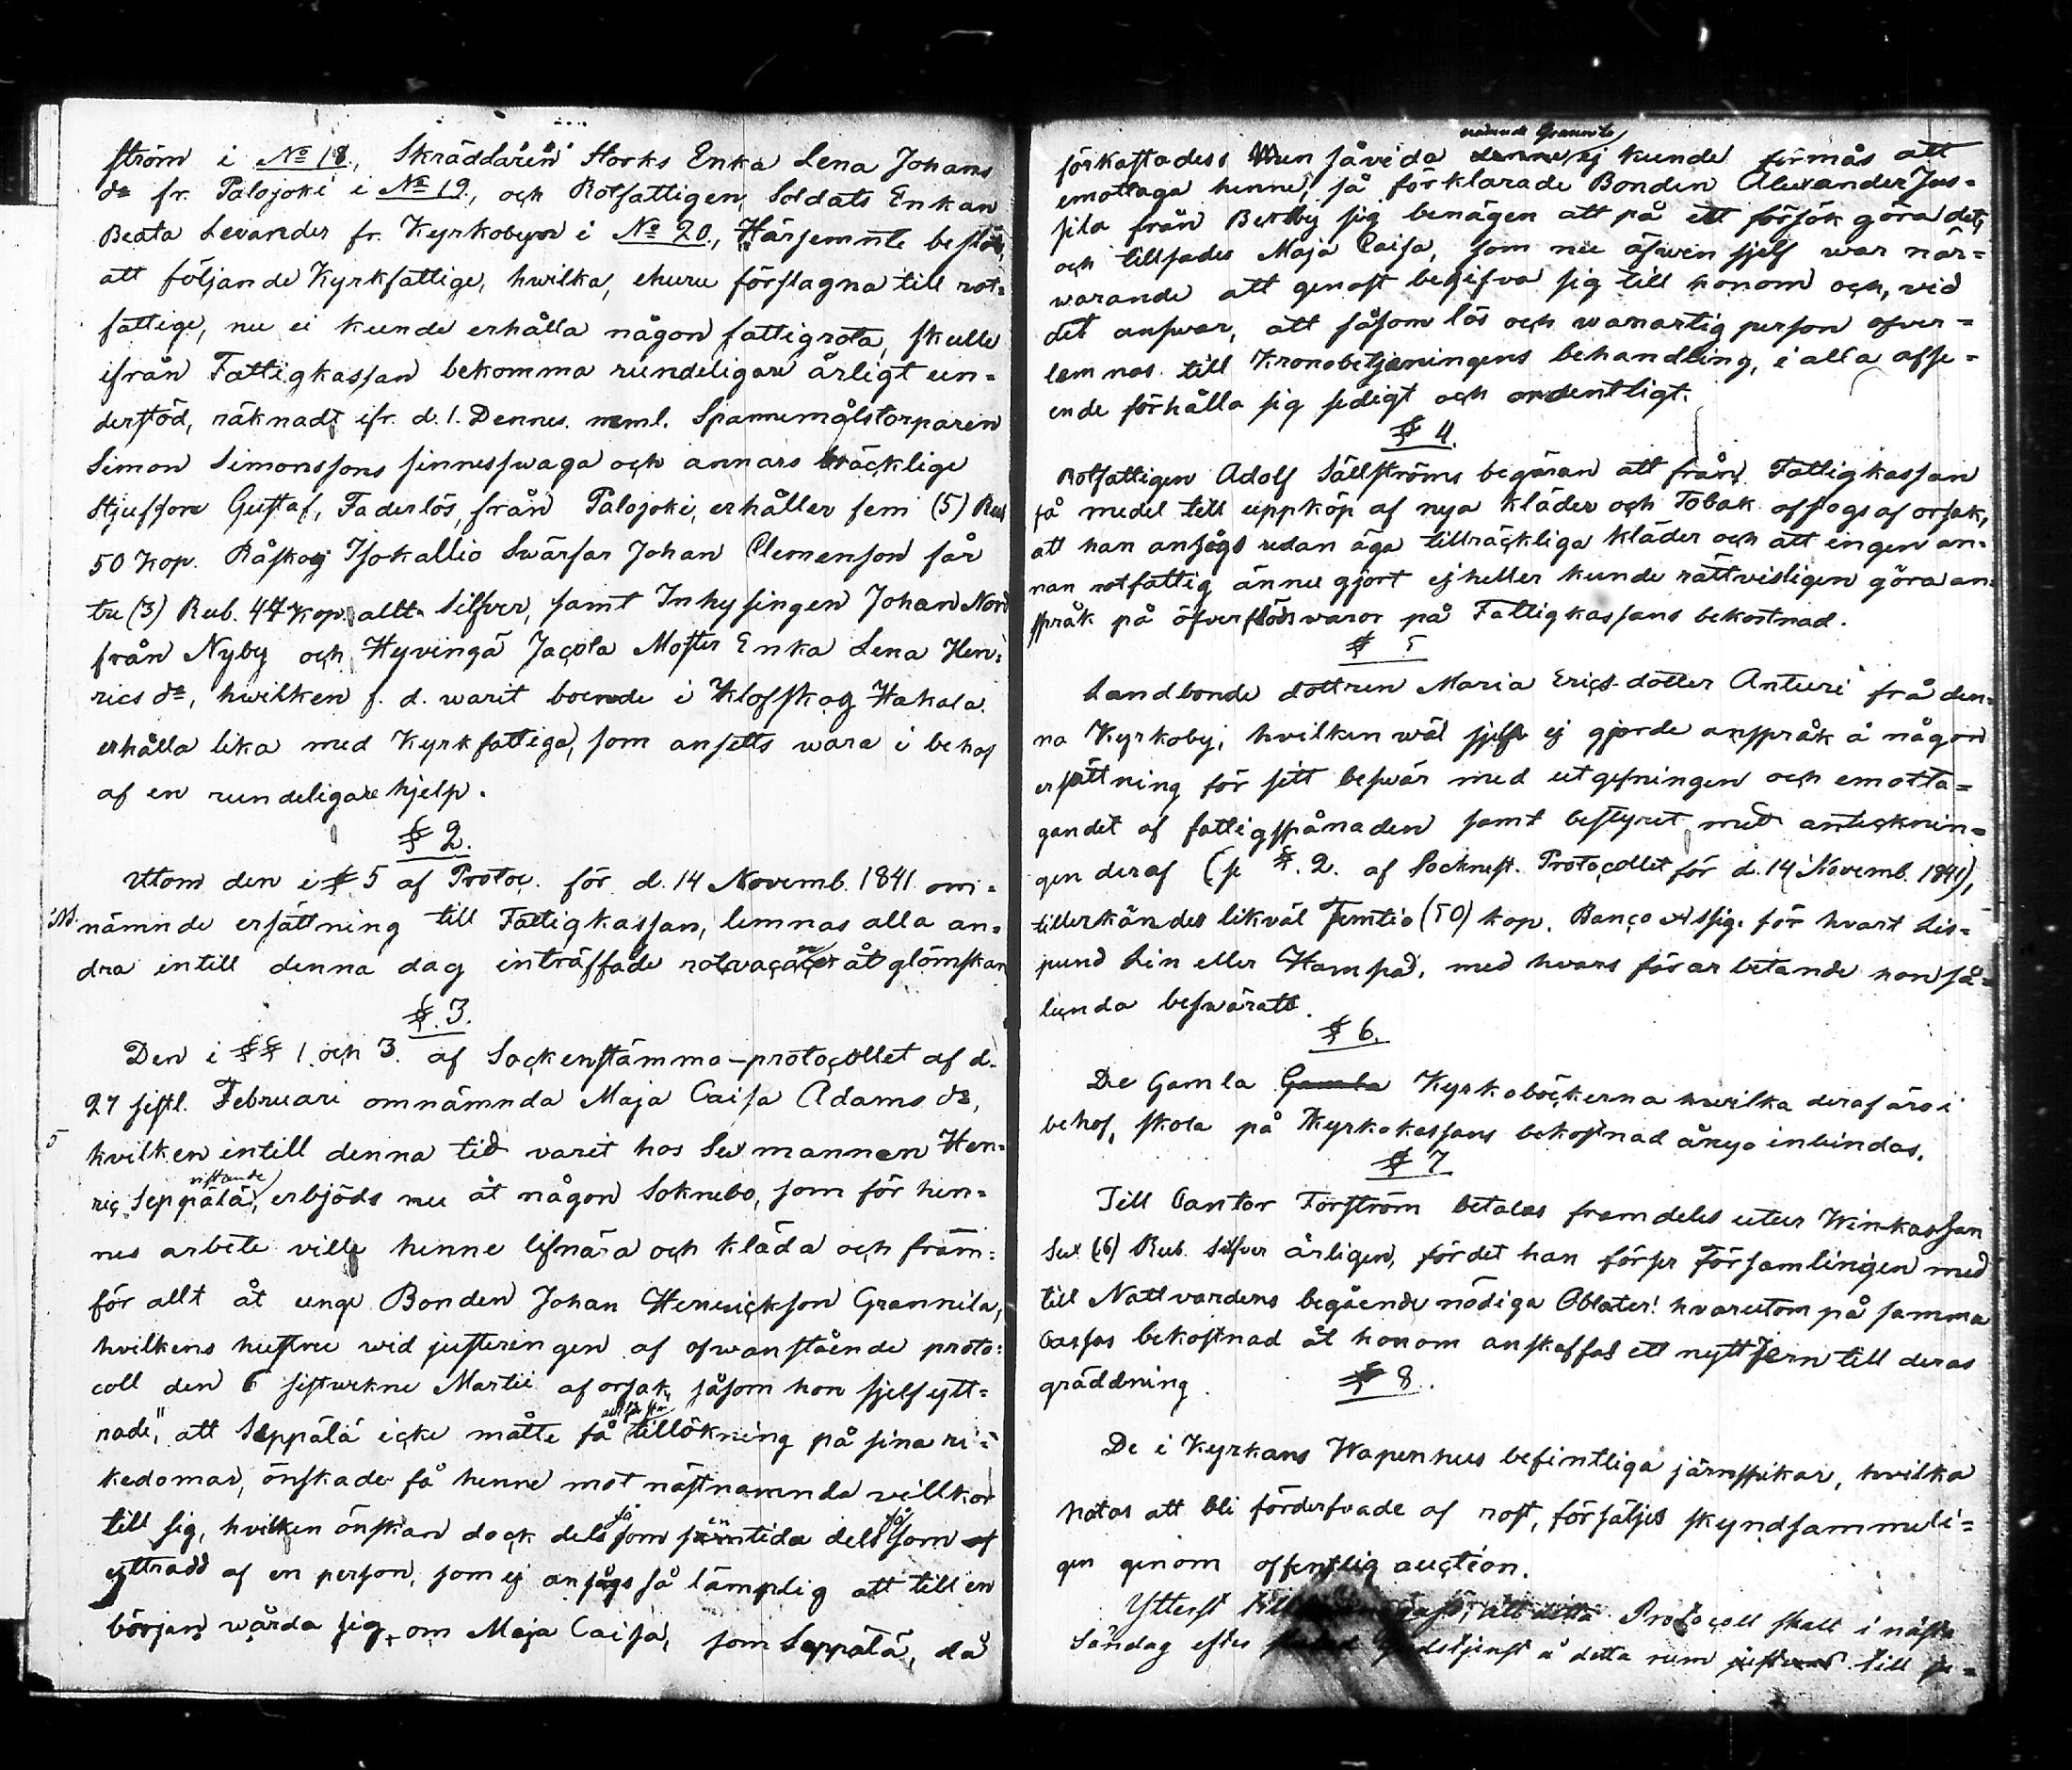 ström i No 18, Skräddaren Storks Enka Lena Johans
dr fr. Palojoki i No 19, och Rotfattigen, Soldats Enkan
Beata Levander fr. Kyrkobyn i No 20, Härjemnte beslöts,
att följande Kyrkfattige, hwilka, ehuru förslagna till rot=
fattige, nu ei kunde erhålla någon fattigrota, skulle
ifrån Fattigkassan bekomma rundeligare årligt un=
derstöd, räknadt ifr. d. 1. Dennes. neml. Spannemålstorparen
Simon Simonssons sinnesswaga och annars bräcklige
Stjufson Gustaf, Faderlös, från Palojoki, erhåller fem (5) Rub
50 Kop. Råskog Isokallio Swärfar Johan Clemenson får
tre (3) Rub. 44 Kop. allt Silfver, samt Inhysingen Johan Nord
från Nyby och Hyvingä Jacola Moster Enka Lena Hen=
rics dr, hwilken f. d. warit boende i Klofskog Hakala.
erhålla lika med Kyrkfattiga, som ansetts wara i behof
af en rundeligare hjelp.
§ 2.
Utom den i § 5 af Protoc. för d. 14 Novemb. 1841 om=
nämnde ersättning till Fattigkassan, lemnas alla an=
dra intill denna dag inträffade rotvacancer åt glömskan
§. 3.
Den i §§ 1. och 3. af Sockenstämmo-protocollet af d.
27 sistl. Februari omnämnda Maja Caisa Adams dr,
5
hvilken intill denna tid varit hos Sexmannen Hen=
vistande
ric Seppälä, erbjöds nu åt någon Soknebo, som för hen=
nes arbete ville henne lifnära och kläda och fram=
för allt åt unge Bonden Johan Henricksson Grannila,
hvilkens hustru wid justeringen af ofwanstående proto=
coll den 6 sistwekne Martii af orsak, såsom hon sjelf ytt=
rade, "att Seppälä icke måtte få tillökning på sina ri=
kedomar, önskade få henne mot nästnamnda villkor
till sig, hvilken önskan dock dels såsom sentida dels såsom
yttradd af en person, som ej ansågs så lämplig att till en
början wårda sig om Maja Caisa, som Seppälä, då
nämnde Grannila
förkastades. Men såvida denne ej kunde förmås att
emottaga henne, så förklarade Bonden Alexander Jus=
sila från Bertby sig benägen att på ett försök göra det,
och tillsades Maja Caisa, som nu äfwen sjelf war när=
warande att genast begifva sig till honom och, vid
det answar, att såsom lös och wanartig person öfver=
lemnas till Kronobetjeningens behandling, i alla afse=
ende förhålla sig sedigt och ordentligt.
§ 4.
Rotfattigen Adolf Sällströms begäran att från Fattigkassan
få medel till uppköp af nya kläder och Tobak afslogs af orsak,
att han ansågs redan äga tillräckliga kläder och att ingen an=
nan rotfattig ännu gjort ej heller kunde rättvisligen göra an=
språk på öfverflödsvaror på Fattigkassans bekostnad.
§ 5
Landbonde dottren Maria Erics dotter Anturi frå den=
na Kyrkoby, hvilken wäl sjelf ej gjorde anspråk å någon
ersättning för sitt beswär med utgifningen och emotta=
gandet af fattigspånaden samt bestyret med anteckning=
gen deraf (se §. 2. af Sockenst. Protocollet för d. 14 Novemb. 1841),
tillerkändes likväl Femtio (50) kop. Banco Assig. för hvart Lis=
pund Lin eller Hampa, med hvars förarbetande hon så=
lunda beswäratt.
§ 6.
De Gamla Gamla Kyrkoböckerna hwilka deraf äro i
behof, skola på Kyrkokassans bekostnad å nyo inbindas.
§ 7
Till Cantor Forström betalas framdeles utur Winkassan
Sex (6) Rub. Silfver årligen, för det han förser Församlingen med
till Nattvardens begående nödiga Oblater! hvarutom på samma
Cassas bekostnad åt honom anskaffas ett nytt Jern till deras
gräddning.
§ 8.
De i Kyrkans Wapenhus befintliga järnspikar, hvilka
hotas att bli förderfvade af rost, försäljes skyndsammeli=
gen genom offentlig auction.
Ytterst att detta Protocoll skall i nästa
Söndag efter Gudstjenst å detta rum justeras till